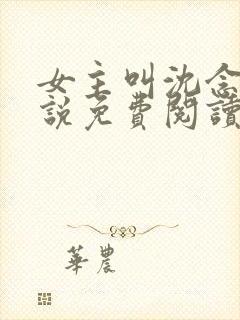 女主叫沈念
說免費閱讀
華農